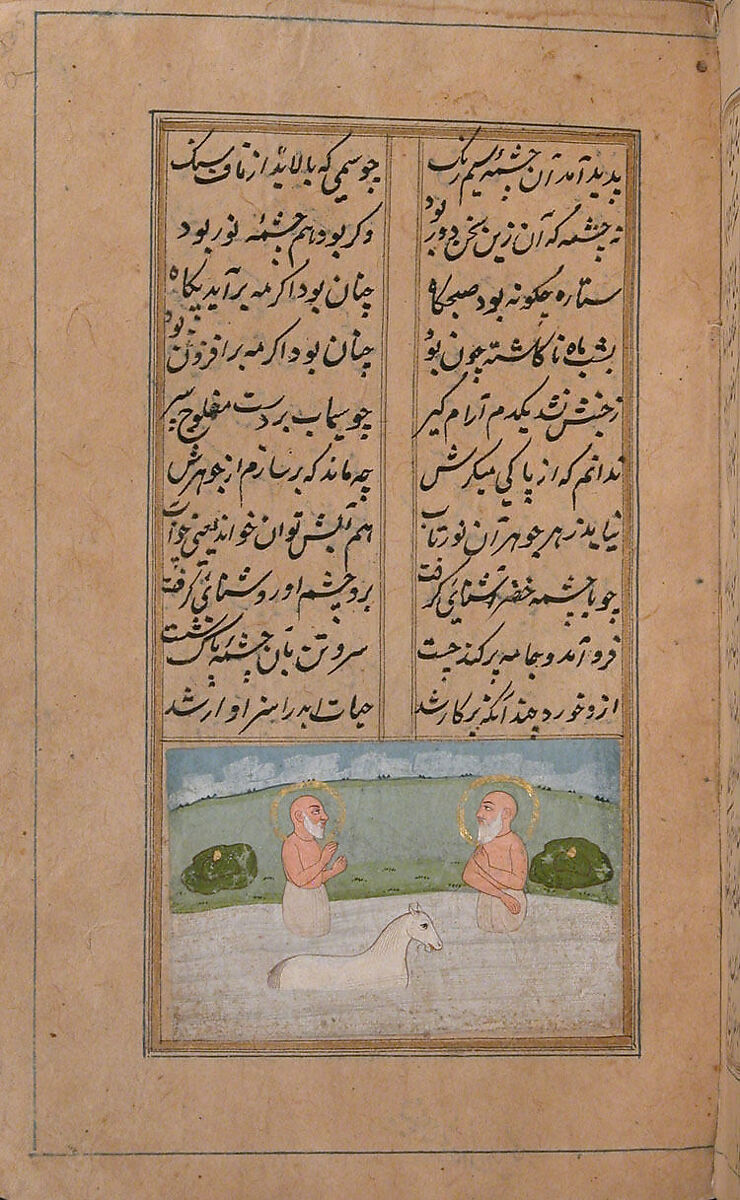 پدید آمد آن چشمهٔ سیم رنک چو سیمی که بالاید از ناف سنک
نه چشمه که آن زین سخن دور بود وکر بود هم چشمهٔ نور بود
ستاره چکونه بود صبحکاه چنان بود اکر مه برآید پکاه
بشب ماه ناکاسته چون بود چنان بود اکر مه برافزون بود
زجنبش نشد یکدم آرام کیر چو سیماب بر دست مفلوج پیر
ندانم که از پاکی پیکرش چه مانند که بر سازم از جوهرش
نیاید زهر جوهر آن نور و تاب هم آتش توان خواند یعنی هم آب
چو با چشمه خضر آشنایی کرفت بدو چشم او روشنایی کرفت
فرو آمد و جامه برکند چست سر و تن بآن چشمهٔ پاک شست
ازو خورد چندانکه بر کار شد حیات ابد را سزاوار شد